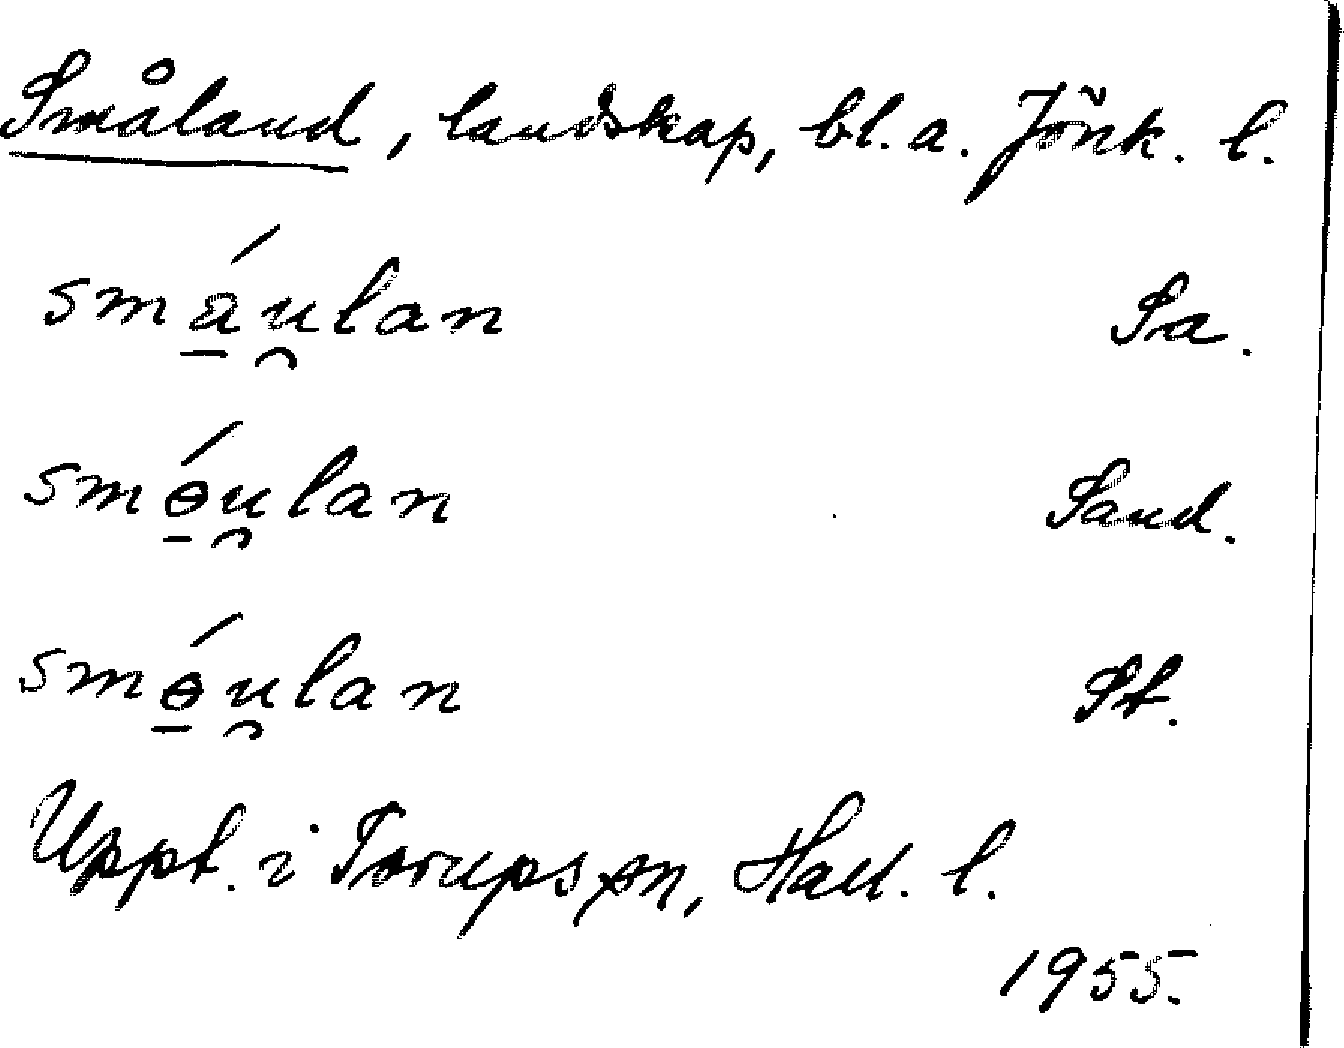 Småland, landskap, bl. a. Jönk. l.
smá̱u̯lan Sa.
smɵ̱́u̯lan Sand.
smɵ̱́u̯lan St.
Uppt. i Torups sn, Hall. l.
1955.